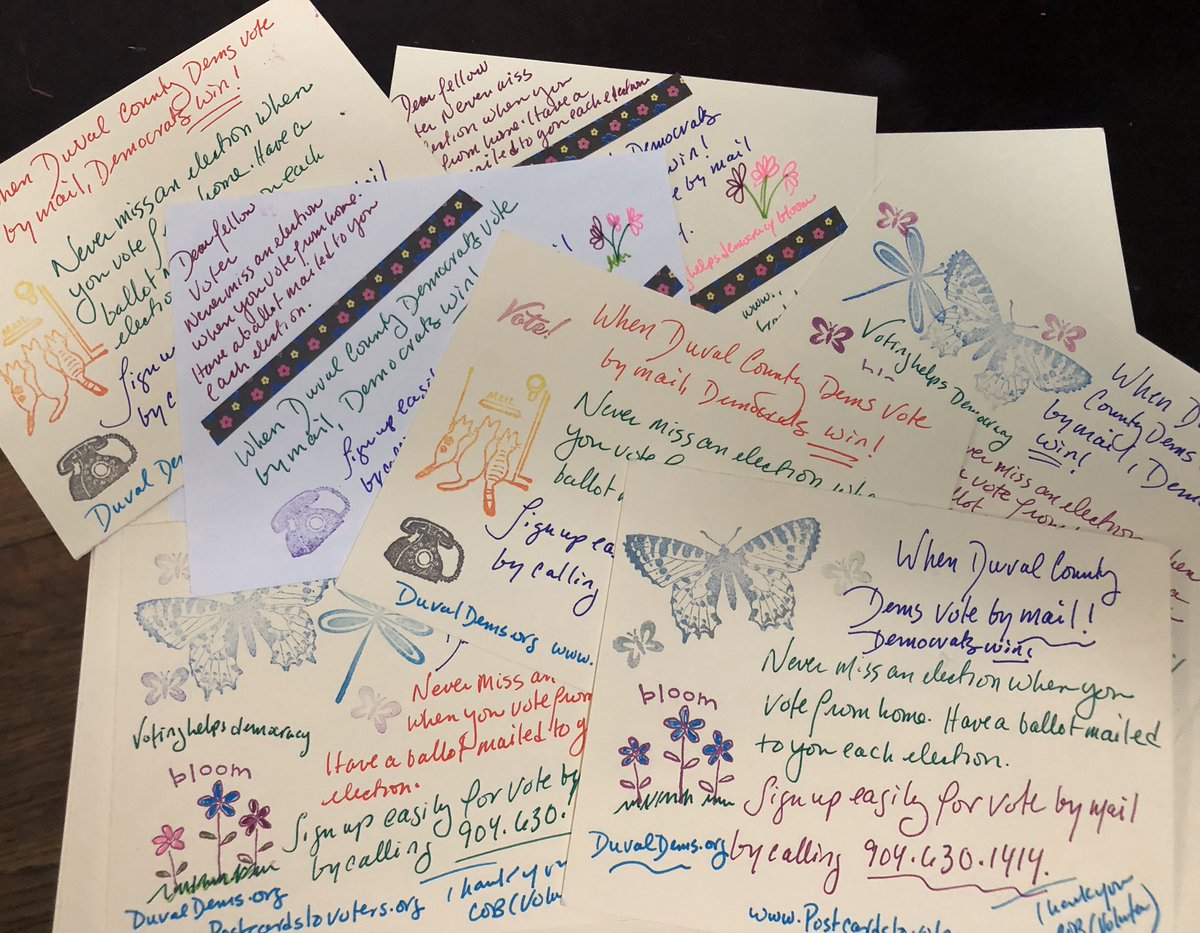 When Duval County Dems vote
by mail, Democrats win!
Never miss an election when
you vote
home. Have a
ballot
each
election
MAIL
Sign
by
Duval Dem
Dear fellow
Never miss
election when you
from home. Have a
mailed to you each election
Democrats
win!
by mail
helps democracy bloom
www.
Dear fellow
voter
Never miss an election
when you vote from home.
Have a ballot mailed to you
each election.
When Duval County Democrats vote
by mail, Democrats win!
Sign up easil
by
Vote!
When Duval County Dems vote
by mail, Democrats win!
Never miss an election whe
you vote
ballot
MAIL
Sign up ea
by calling
DuvalDems.org www.
Voting helps
Democracy
When D
County Dems
by mail, Dem
win!
never miss an election
vote from
ballot
Voting helps democracy
bloom
Never miss an
when you vote from
Have a ballot mailed to y
election.
Sign up easily for vote by
by calling 904.630.
DuvalDems.org
Postcardstovoters.org
Thank you
COB (Volu
When Duval County
Dems vote by mail!
Democrats win!
Never miss an election when you
vote from home. Have a ballot mailed
to you each election.
bloom
Sign up easily for vote by mail
DuvalDems.org by calling 904.630.1414.
www.Postcardsto
Thank you
COB (Volunteer)